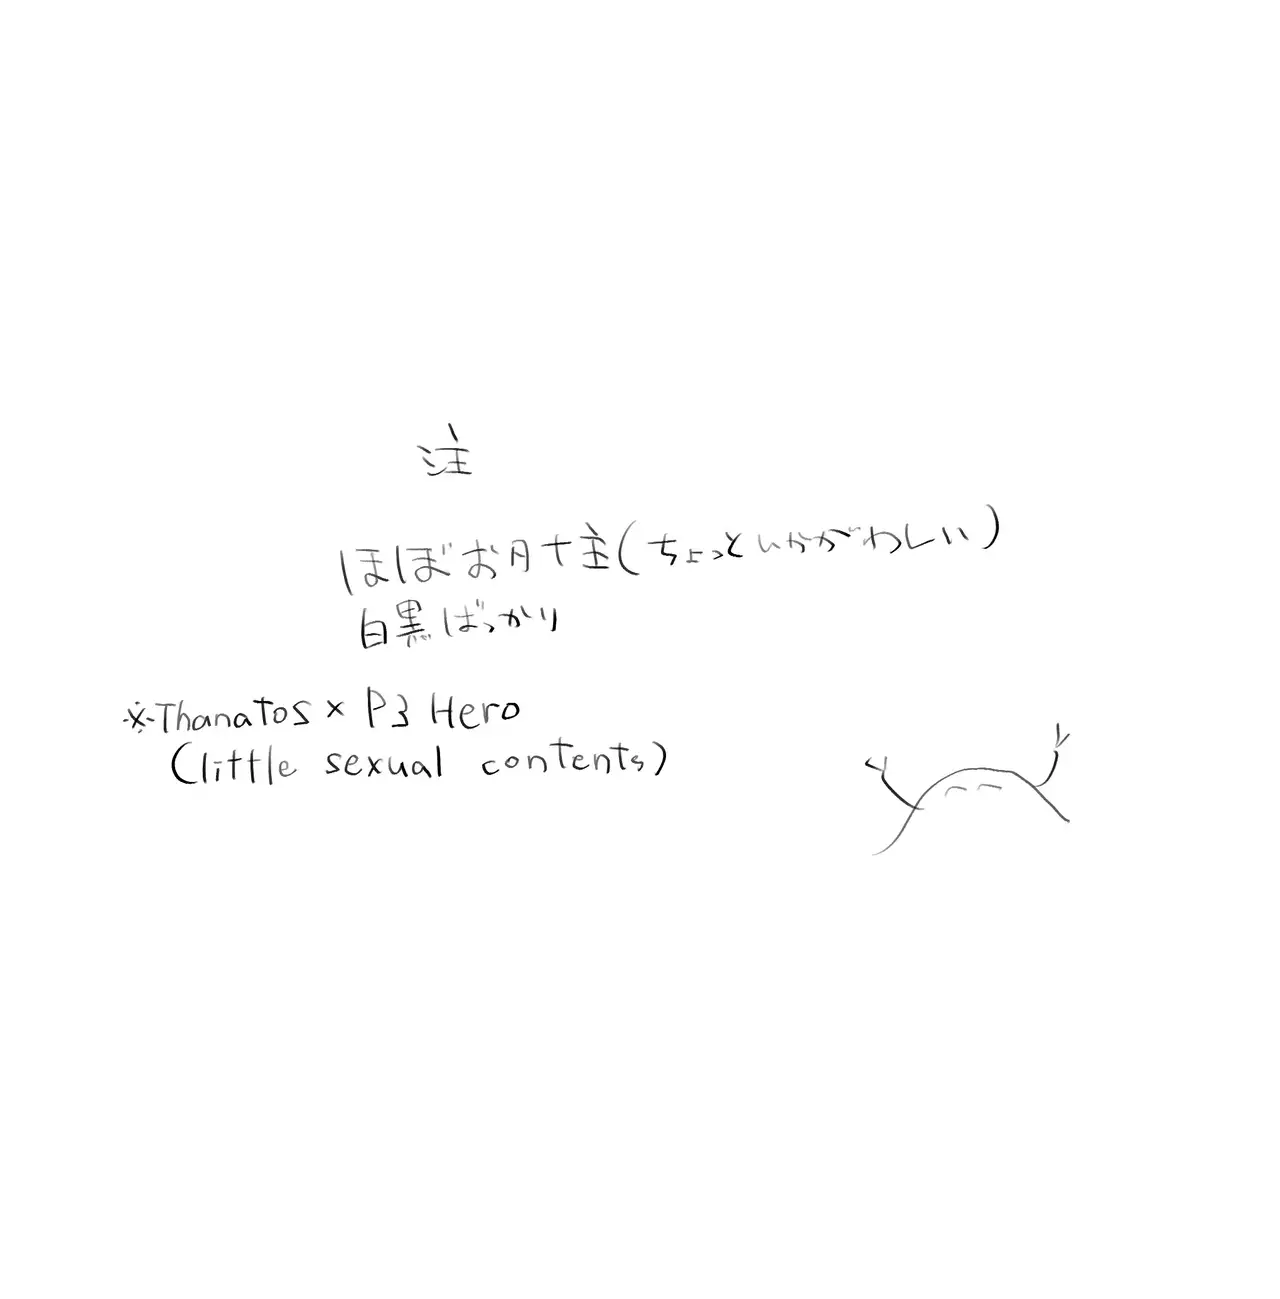 注
ほぼお月十主(ちょっといかがわしい)
白黒ばっかり
※Thanatos × P3 Hero
(little sexual contents)